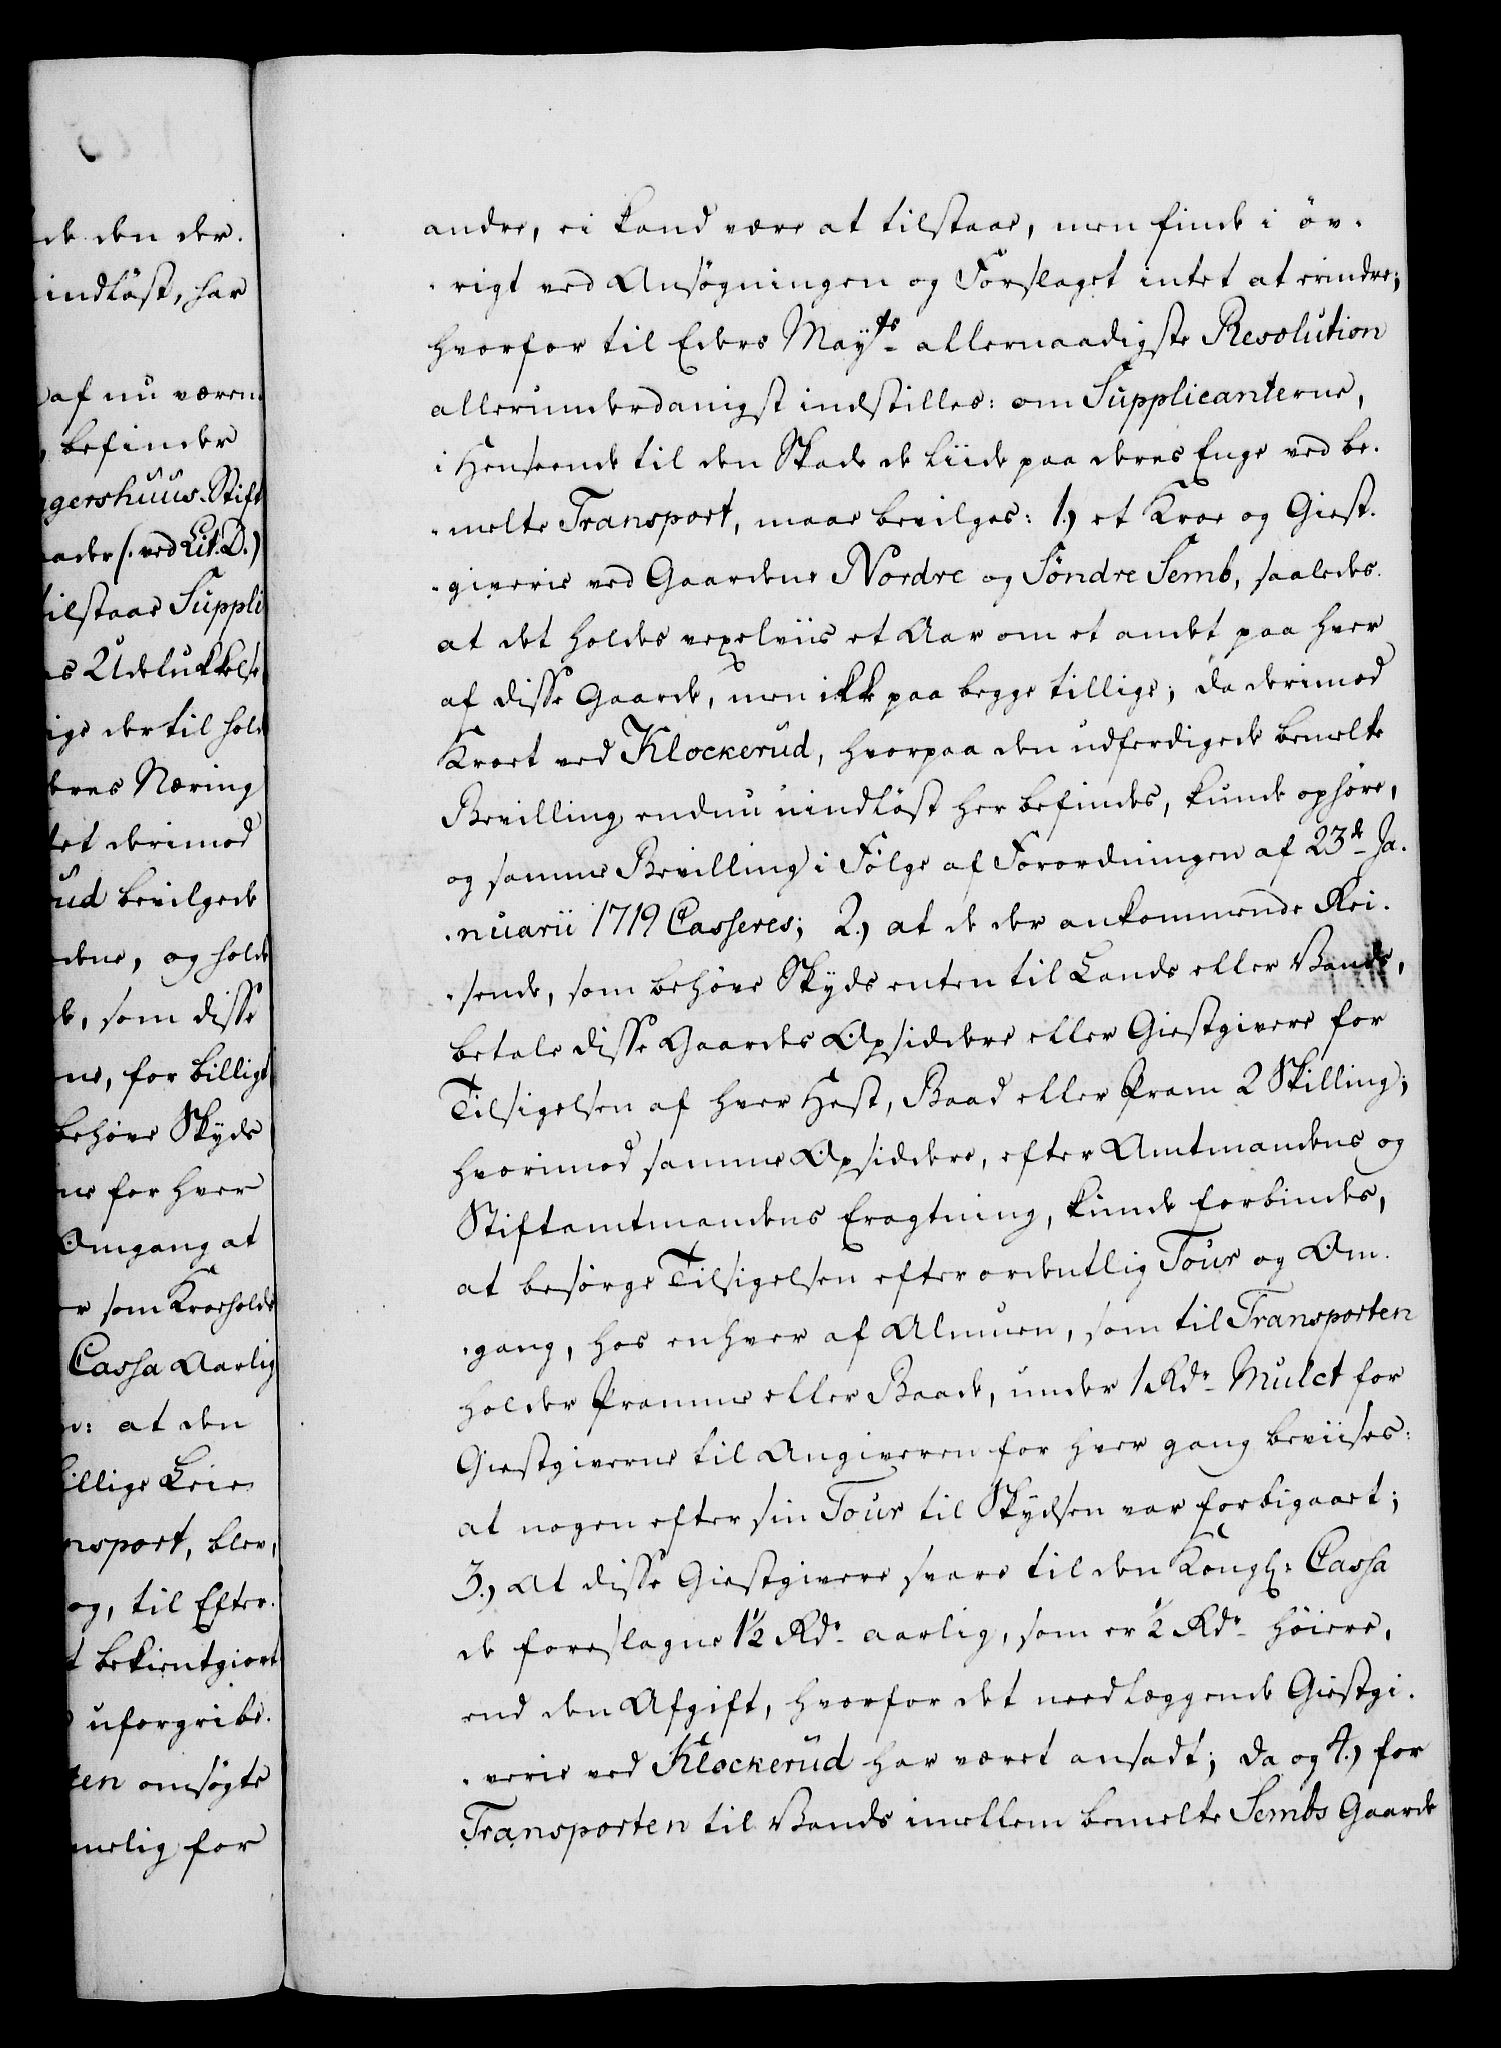 de den der.
indløst, har
af nu væren
befinder
gershuus-Stift
ader (: ved Lit. D.)
tilstaae Suppli
s Udelukkelse
ige der til hold
deres Næring
et derimod
ud bevilgede
dene, og holde
de, som disse
ne, for billigt
behøve Skyds
ne for hver
Omgang at
r som Kroeholde
Cassa Aarlig
at den
billige Leie
nsport, blev,
og, til Efter.
t bekientgiort
uforgribe.
ten ansøgte
melig for
andre, ei kand være at tilstaae, men finde i øv.
-rigt ved Ansøgningen og Forslaget intet at erindre;
hvorfor til Eders Mayts allernaadigste Resolution
allerunderdanigst indstilles: om Supplicanterne,
i Henseende til den Skade de liide paa deres Enge ved be.
-melte Transport, maae bevilges: 1.) et Kroe og Giest.
-giverie ved Gaardene Nordre og Søndre Semb, saaledes
at det holdes vexelviis et Aar om et andet paa hver
af disse Gaarde, men ikke paa begge tillige; da derimod
Kroet ved Klockerud, hvorpaa den udferdigede bemelte
Bevilling endnu uindløst her befindes, kunde ophøre,
og samme Bevilling i Følge af Forordningen af 23de Ja.
-nuarii 1719 Casseres; 2.) at de der ankommende Rei.
-sende, som behøve Skyds enten til Lands eller Vands,
betale disse Gaardes Opsiddere eller Giestgivere for
Tilsigelsen af hver Hest, Baad eller Pram 2 Skilling;
hvorimod samme Opsiddere, efter Amtmandens og
Stiftamtmandens Eragtning, kunde forbindes,
at besørge Tilsigelsen efter ordentlig Tour og Om.
-gang, hos enhver af Almuen, som til Transporten
holder Pramme eller Baade, under 1 Rdr Mulct for
Giestgiverne til Angiveren for hver gang beviises:
at nogen efter sin Tour til Skydsen var forbigaaet;
3.) At disse Giestgivere svare til den Kongl: Cassa
de foreslagne 1½ Rdr aarlig, som er ½ Rdr høiere,
end den Afgift, hvorfor det nedlæggende Giestgi.
-verie ved Klockerud har været ansadt; da og 4.) for
Transporten til Vands imellem bemelte Sembs Gaarde